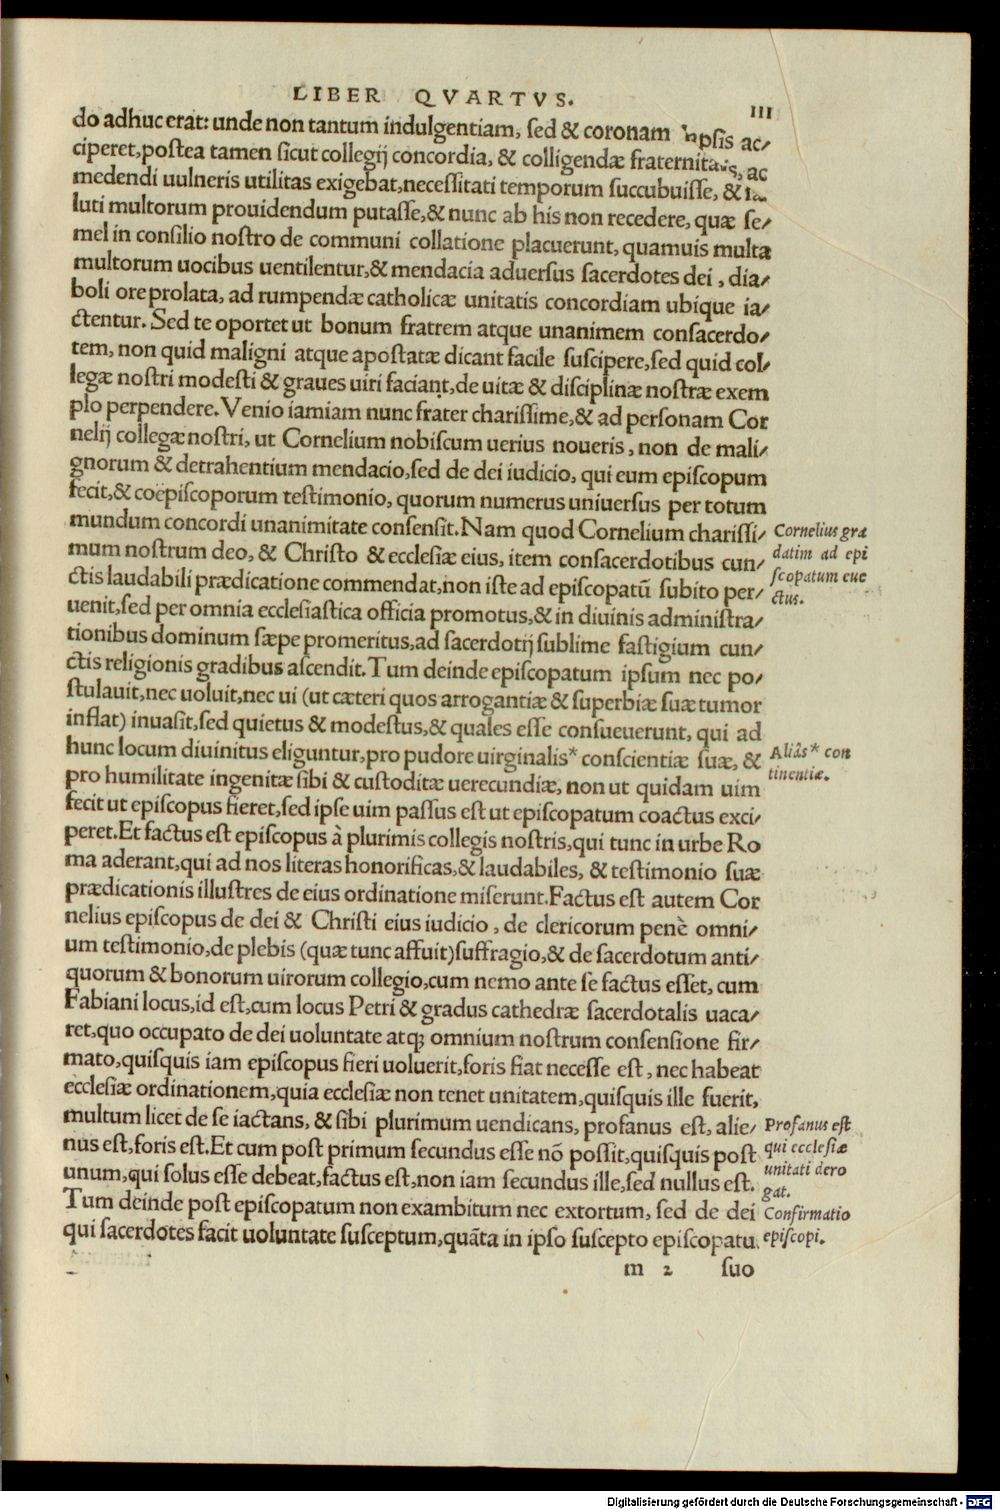 LIBER QVARTVS.
III
do adhuc erat: unde non tantum indulgentiam, sed & coronam ipsis ac/
ciperet, postea tamen sicut collegij concordia, & colligendæ fraternitatis, ac
medendi uulneris utilitas exigebat, necessitati temporum succubuisse, &
luti multorum prouidendum putasse, & nunc ab his non recedere, quæ se/
mel in consilio nostro de communi collatione placuerunt, quamuis multa
multorum uocibus uentilentur, & mendacia aduersus sacerdotes dei, dia/
boli ore prolata, ad rumpendæ catholicæ unitatis concordiam ubique ia/
ctentur. Sed te oportet ut bonum fratrem atque unanimem consacerdo/
tem, non quid maligni atque apostatæ dicant facile suscipere, sed quid col/
legæ nostri modesti & graues uiri faciant, de uitæ & disciplinæ nostræ exem
plo perpendere. Venio iamiam nunc frater charissime, & ad personam Cor
nelij collegæ nostri, ut Cornelium nobiscum uerius noueris, non de mali/
gnorum & detrahentium mendacio, sed de dei iudicio, qui eum episcopum
fecit, & coëpiscoporum testimonio, quorum numerus uniuersus per totum
mundum concordi unanimitate consensit. Nam quod Cornelium charissi/
mum nostrum deo, & Christo & ecclesiæ eius, item consacerdotibus cun/
ctis laudabili prædicatione commendat, non iste ad episcopatũ subito per/
uenit, sed per omnia ecclesiastica officia promotus, & in diuinis administra/
tionibus dominum sæpe promeritus, ad sacerdotij sublime fastigium cun/
ctis religionis gradibus ascendit. Tum deinde episcopatum ipsum nec po/
stulauit, nec uoluit, nec ui (ut cæteri quos arrogantiæ & superbiæ suæ tumor
inflat) inuasit, sed quietus & modestus, & quales esse consueuerunt, qui ad
hunc locum diuinitus eliguntur, pro pudore uirginalis* conscientiæ suæ, &
pro humilitate ingenitæ sibi & custoditæ uerecundiæ, non ut quidam uim
fecit ut episcopus fieret, sed ipse uim passus est ut episcopatum coactus exci/
peret. Et factus est episcopus à plurimis collegis nostris, qui tunc in urbe Ro
ma aderant, qui ad nos literas honorificas, & laudabiles, & testimonio suæ
prædicationis illustres de eius ordinatione miserunt. Factus est autem Cor
nelius episcopus de dei & Christi eius iudicio, de clericorum penè omni/
um testimonio, de plebis (quæ tunc affuit) suffragio, & de sacerdotum anti/
quorum & bonorum uirorum collegio, cum nemo ante se factus esset, cum
Fabiani locus, id est, cum locus Petri & gradus cathedræ sacerdotalis uaca/
ret, quo occupato de dei uoluntate atq; omnium nostrum consensione fir/
mato, quisquis iam episcopus fieri uoluerit, foris fiat necesse est, nec habeat
ecclesiæ ordinationem, quia ecclesiæ non tenet unitatem, quisquis ille fuerit,
multum licet de se iactans, & sibi plurimum uendicans, profanus est, alie/
nus est, foris est. Et cum post primum secundus esse nõ possit, quisquis post
unum, qui solus esse debeat, factus est, non iam secundus ille, sed nullus est.
Tum deinde post episcopatum non exambitum nec extortum, sed de dei
qui sacerdotes facit uoluntate susceptum, quãta in ipso suscepto episcopatu
m 2 suo
Cornelius græ
datim ad epi
scopatum eue
ctus.
Aliâs* con
tinentiæ.
Profanus est
qui ecclesiæ
unitati dero
gat.
Confirmatio
episcopi.
Digitalisierung gefördert durch die Deutsche Forschungsgemeinschaft - DFG